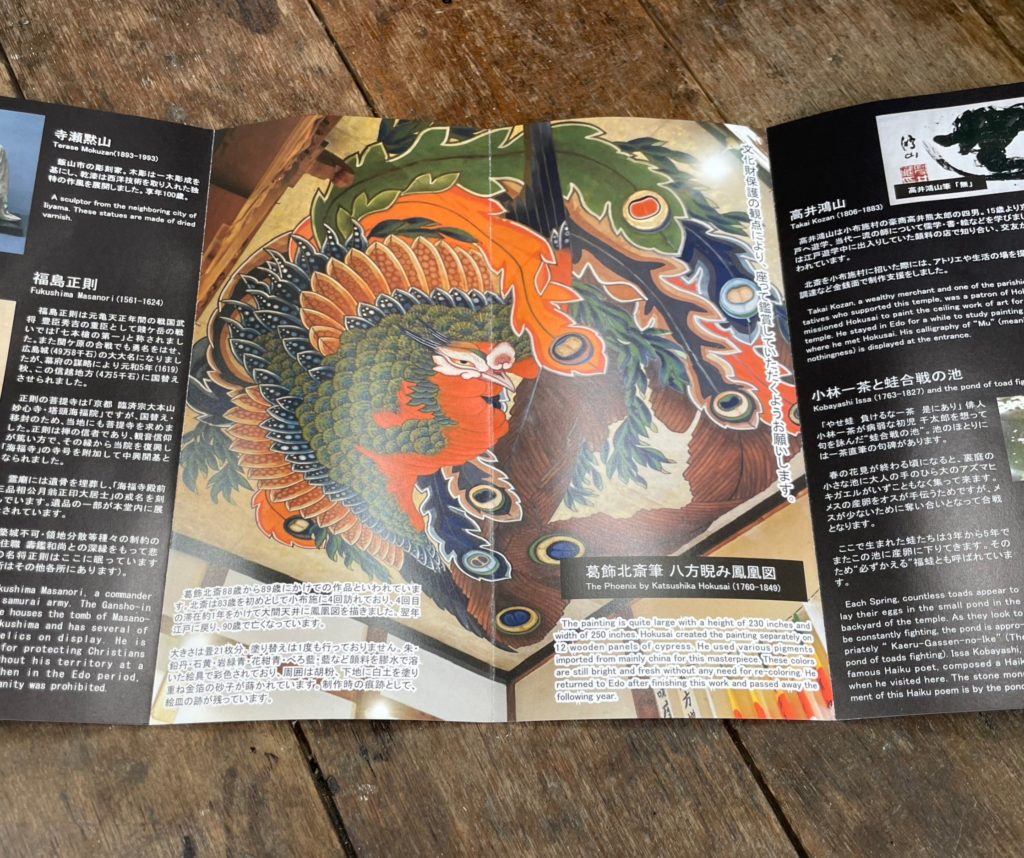 寺瀬黙山
Terase Mokuzan(1893-1993)
飯山市の彫刻家。木彫は一木彫成を
基にし、乾漆は西洋技術を取り入れた独
特の作風を展開しました。享年100歳。
A sculptor from the neighboring city of
Iiyama. These statues are made of dried
varnish.
福島正則
Fukushima Masanori(1561-1624)
福島正則は元亀天正年間の戦国武
将 豊臣秀吉の重臣として賤ケ岳の戦
いでは「七本槍の第一」と称されまし
た。また関ケ原の合戦でも勇名をはせ、
広島城(49万8千石)の大大名になりまし
たが、幕府の謀略により元和5年(1619)
秋、この信越地方(4万5千石)に国替え
させられました。
正則の菩提寺は「京都 臨済宗大本山
妙心寺・塔頭海福院」ですが、国替え・
移封のため、当地にも菩提寺を求めま
した。正則は禅の信者であり、観音信仰
が篤い方で、その縁から当院を復興し
「海福寺」の寺号を附加して中興開基と
なられました。
霊廟には遺骨を埋葬し、「海福寺殿前
三品相公月翁正印大居士」の戒名を刻
っています。遺品の一部が本堂内に展
されています。
築城不可・領地分散等種々の制約の
住職 壽鑑和尚との深縁をもって悲
の名将正則はここに眠っています
所はその他各所にあります)。
kushima Masanori, a commander
samurai army. The Gansho-in
e houses the tomb of Masano-
kushima and has several of
elics on display. He is
for protecting Christians
hout his territory at a
hen in the Edo period,
anity was prohibited.
文化財保護の観点により、座って鑑賞していただくようお願いします。
葛飾北斎88歳から89歳にかけての作品といわれていま
す。北斎は83歳を初めとして小布施に4回訪れており、4回目
の滞在約1年をかけて大間天井に鳳凰図を描きました。翌年
江戸に戻り、90歳で亡くなっています。
大きさは畳21枚分。塗り替えは1度も行っておりません。朱・
鉛丹・石黄・岩緑青・花紺青・べろ藍・藍など顔料を膠水で溶
いた絵具で彩色されており、周囲は胡粉、下地に白土を塗り
重ね金箔の砂子が蒔かれています。制作時の痕跡として、
絵皿の跡が残っています。
葛飾北斎筆 八方睨み鳳凰図
The Phoenix by Katsushika Hokusai (1760-1849)
The painting is quite large with a height of 230 inches and
width of 250 inches. Hokusai created the painting separately on
12 wooden panels of cypress. He used various pigments
imported from mainly china for this masterpiece. These colors
are still bright and vivid without any need for re-coloring. He
returned to Edo after finishing this work and passed away the
following year.
高井鴻山筆「無」
高井鴻山
Takai Kozan (1806-1883)
高井鴻山は小布施村の豪商高井熊太郎の四男。15歳より京
戸へ遊学、当代一流の師について儒学・書・絵などを学びま
は江戸遊学中に出入りしていた顔料の店で知り合い、交友が
われています。
北斎を小布施村に招いた際には、アトリエや生活の場を提
調達など金銭面で制作支援をしました。
Takai Kozan, a wealthy merchant and one of the parishi
tatives who supported this temple, was a patron of Hok
missioned Hokusai to paint the ceiling work of art for
temple. He stayed in Edo for a while to study painting,
where he met Hokusai. His calligraphy of "Mu" (mean
nothingness) is displayed at the entrance.
小林一茶と蛙合戦の池
Kobayashi Issa (1763-1827) and the pond of toad figh
「やせ蛙 負けるな一茶 是にあり」 俳人
小林一茶が病弱な初児 千太郎を想って
句を詠んだ“蛙合戦の池”。池のほとりに
は一茶直筆の句碑があります。
春の花見が終わる頃になると、裏庭の
小さな池に大人の手のひら大のアズマヒ
キガエルがいずこともなく集って来ます。
メスの産卵をオスが手伝うためですが、メ
スが少ないために奪い合いとなって合戦
となります。
ここで生まれた蛙たちは3年から5年で
またこの池に産卵に下りてきます。その
ため“必ずかえる”福蛙とも呼ばれていま
す。
Each Spring, countless toads appear to
lay their eggs in the small pond in the
backyard of the temple. As they look to
be constantly fighting, the pond is appro-
priately " Kaeru-Gassen-no-Ike" (The
pond of toads fighting). Issa Kobayashi, a
famous Haiku poet, composed a Haiku
when he visited here. The stone monu-
ment of this Haiku poem is by the pond.